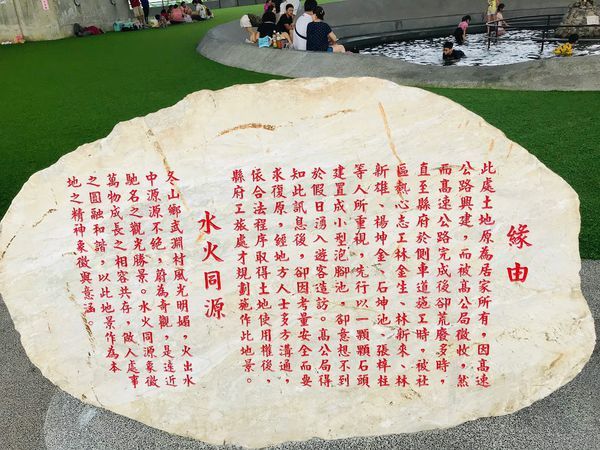 緣由
此處土地原為居家所有，因高速
公路興建，而被高公局徵收，然
而高速公路完成後卻荒廢多時，
直至縣府於側車道施工時，被社
區熱心志工林金生、林新來、林
新雄、楊坤金、石坤池、張梓柱
等人所重視，先行以一顆顆石頭
建置成小型泡腳池，卻意想不到
於假日湧入遊客造訪。高公局得
知此訊息後，卻因考量安全而要
求復原，經地方人士多方溝通，
依合法程序取得土地使用權後，
縣府工旅處才規劃施作此地景。
水火同源
冬山鄉武淵村風光明媚，火出水
中源源不絕，蔚為奇觀，是遠近
馳名之觀光勝景。水火同源象徵
萬物成長之相容共存，做人處事
之圓融和諧，以此地景作為本
地之精神象徵與意涵。